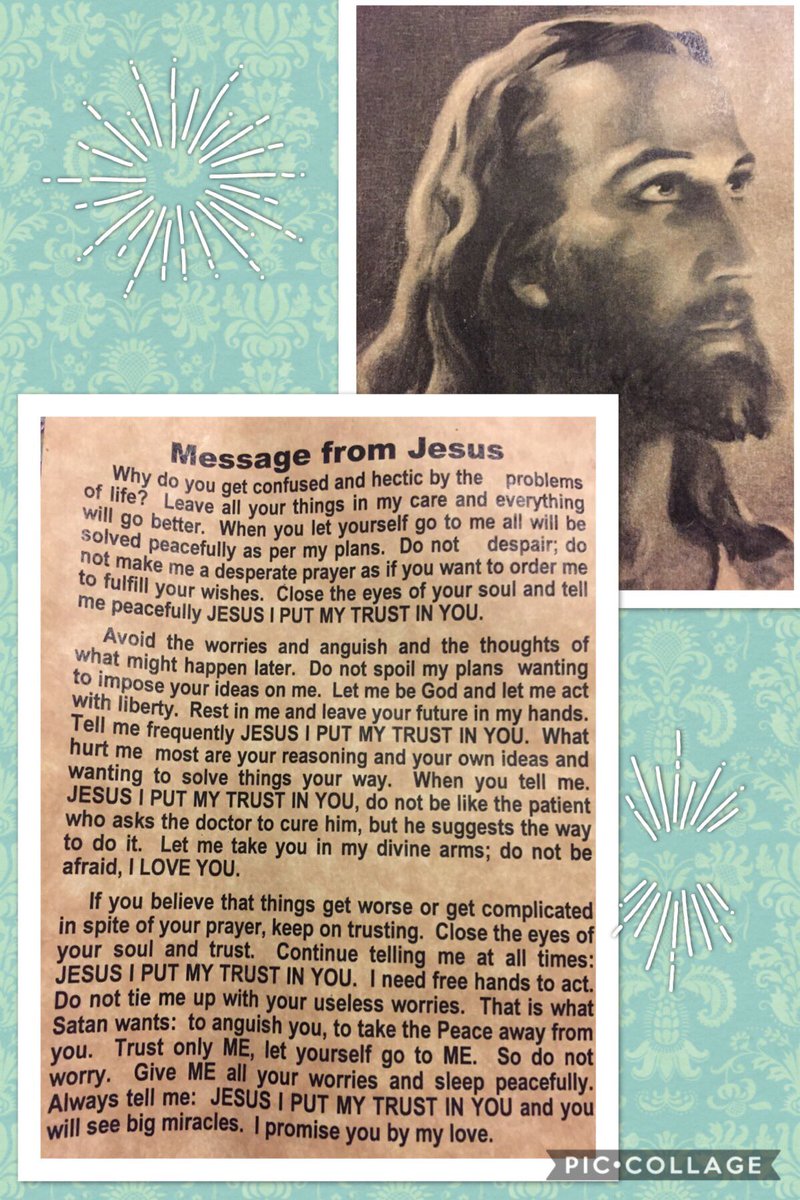 Message from Jesus
Why do you get confused and hectic by the problems
of life? Leave all your things in my care and everything
will go better. When you let yourself go to me all will be
solved peacefully as per my plans. Do not despair; do
not make me a desperate prayer as if you want to order me
to fulfill your wishes. Close the eyes of your soul and tell
me peacefully JESUS I PUT MY TRUST IN YOU.
Avoid the worries and anguish and the thoughts of
what might happen later. Do not spoil my plans wanting
to impose your ideas on me. Let me be God and let me act
with liberty. Rest in me and leave your future in my hands.
Tell me frequently JESUS I PUT MY TRUST IN YOU. What
hurt me most are your reasoning and your own ideas and
wanting to solve things your way. When you tell me.
JESUS I PUT MY TRUST IN YOU, do not be like the patient
who asks the doctor to cure him, but he suggests the way
to do it. Let me take you in my divine arms; do not be
afraid, I LOVE YOU.
If you believe that things get worse or get complicated
in spite of your prayer, keep on trusting. Close the eyes of
your soul and trust. Continue telling me at all times:
JESUS I PUT MY TRUST IN YOU. I need free hands to act.
Do not tie me up with your useless worries. That is what
Satan wants: to anguish you, to take the Peace away from
you. Trust only ME, let yourself go to ME. So do not
worry. Give ME all your worries and sleep peacefully.
Always tell me: JESUS I PUT MY TRUST IN YOU and you
will see big miracles. I promise you by my love.
PIC•COLLAGE